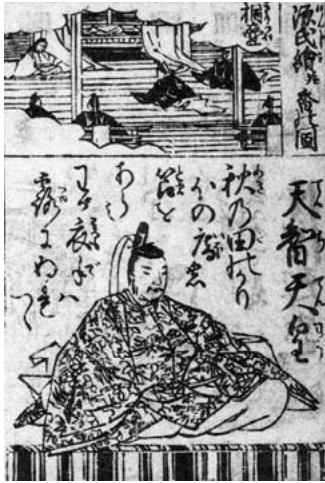 源氏繪并香の圖
桐壺
天智天皇
秋乃田のかり
ほの庵の
苫を
あらみ
わが衣手ハ
露にぬれつゝ